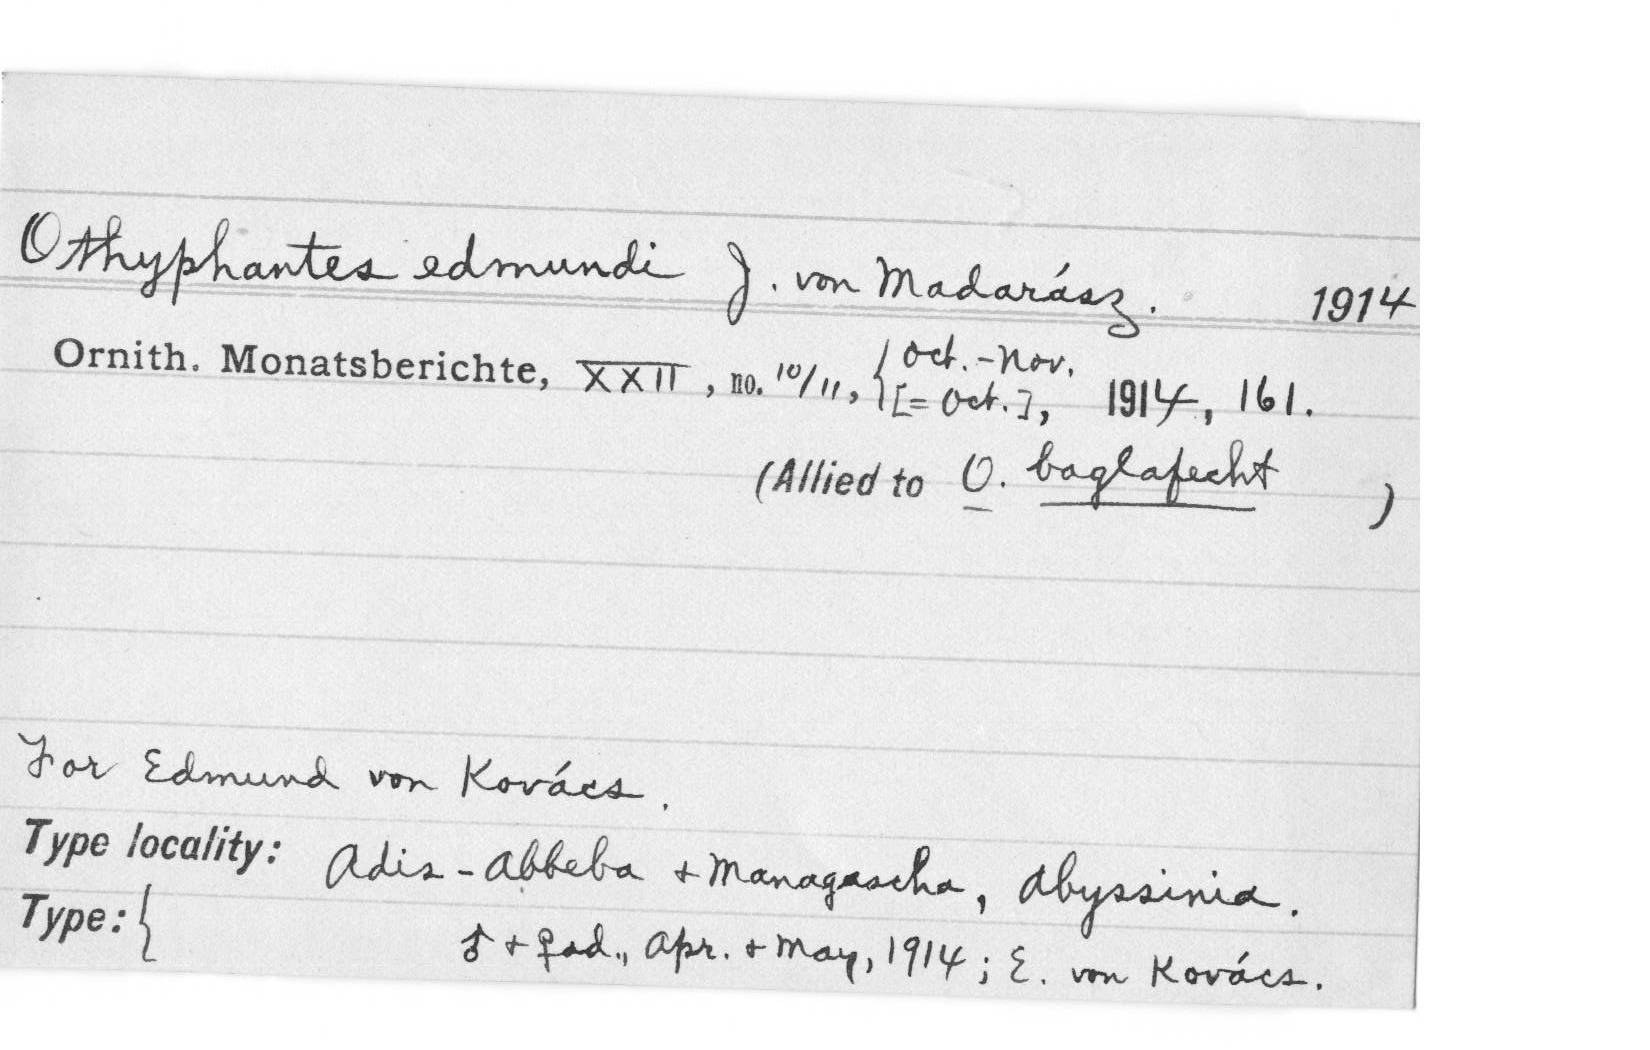 Othyphantes edmundi J. von Madarász. 1914
Ornith. Monatsberichte, XXII, no. 10/11, { Oct. - Nov.
[= Oct.], 1914, 161.
(Allied to O. baglafecht )
For Edmund von Kovács.
Type locality: Adis-Abbeba + Managascha, Abyssinia.
Type: { ♂ + ♀ ad., Apr. + May, 1914; E. von Kovács.